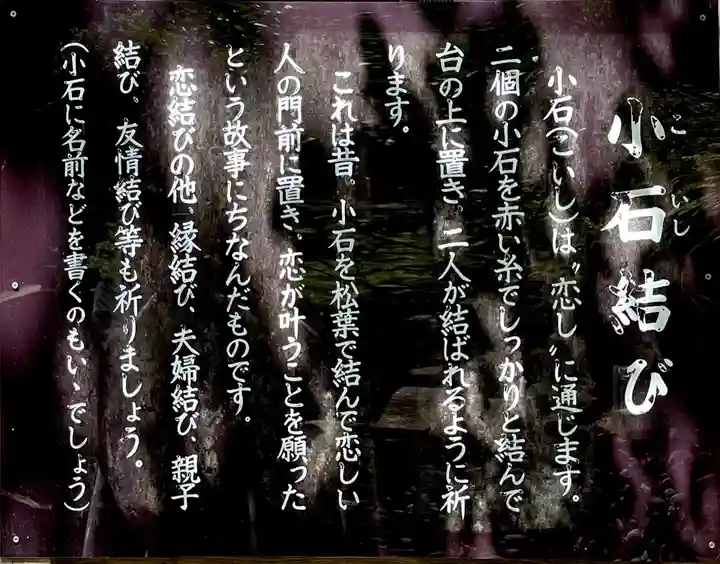 小石結び
こいし
小石(こいし)は〝恋し〟に通じます。
二個の小石を赤い糸でしっかりと結んで
台の上に置き。二人が結ばれるように祈
ります。
これは昔。小石を松葉で結んで恋しい
人の門前に置き。恋が叶うことを願った
という故事にちなんだものです。
恋結びの他、縁結び、夫婦結び、親子
結び。友情結び等も祈りましょう。
(小石に名前などを書くのもいゝでしょう)